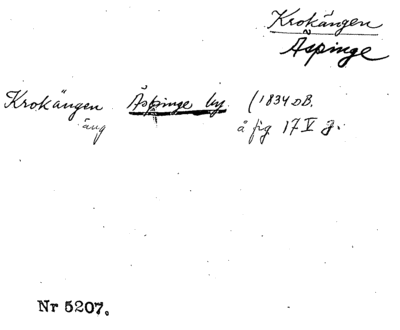 Krokängen
Äspinge
Krokängen Äspinge by. (1834 DB.
äng å fig 17 V J.
Nr 5207.